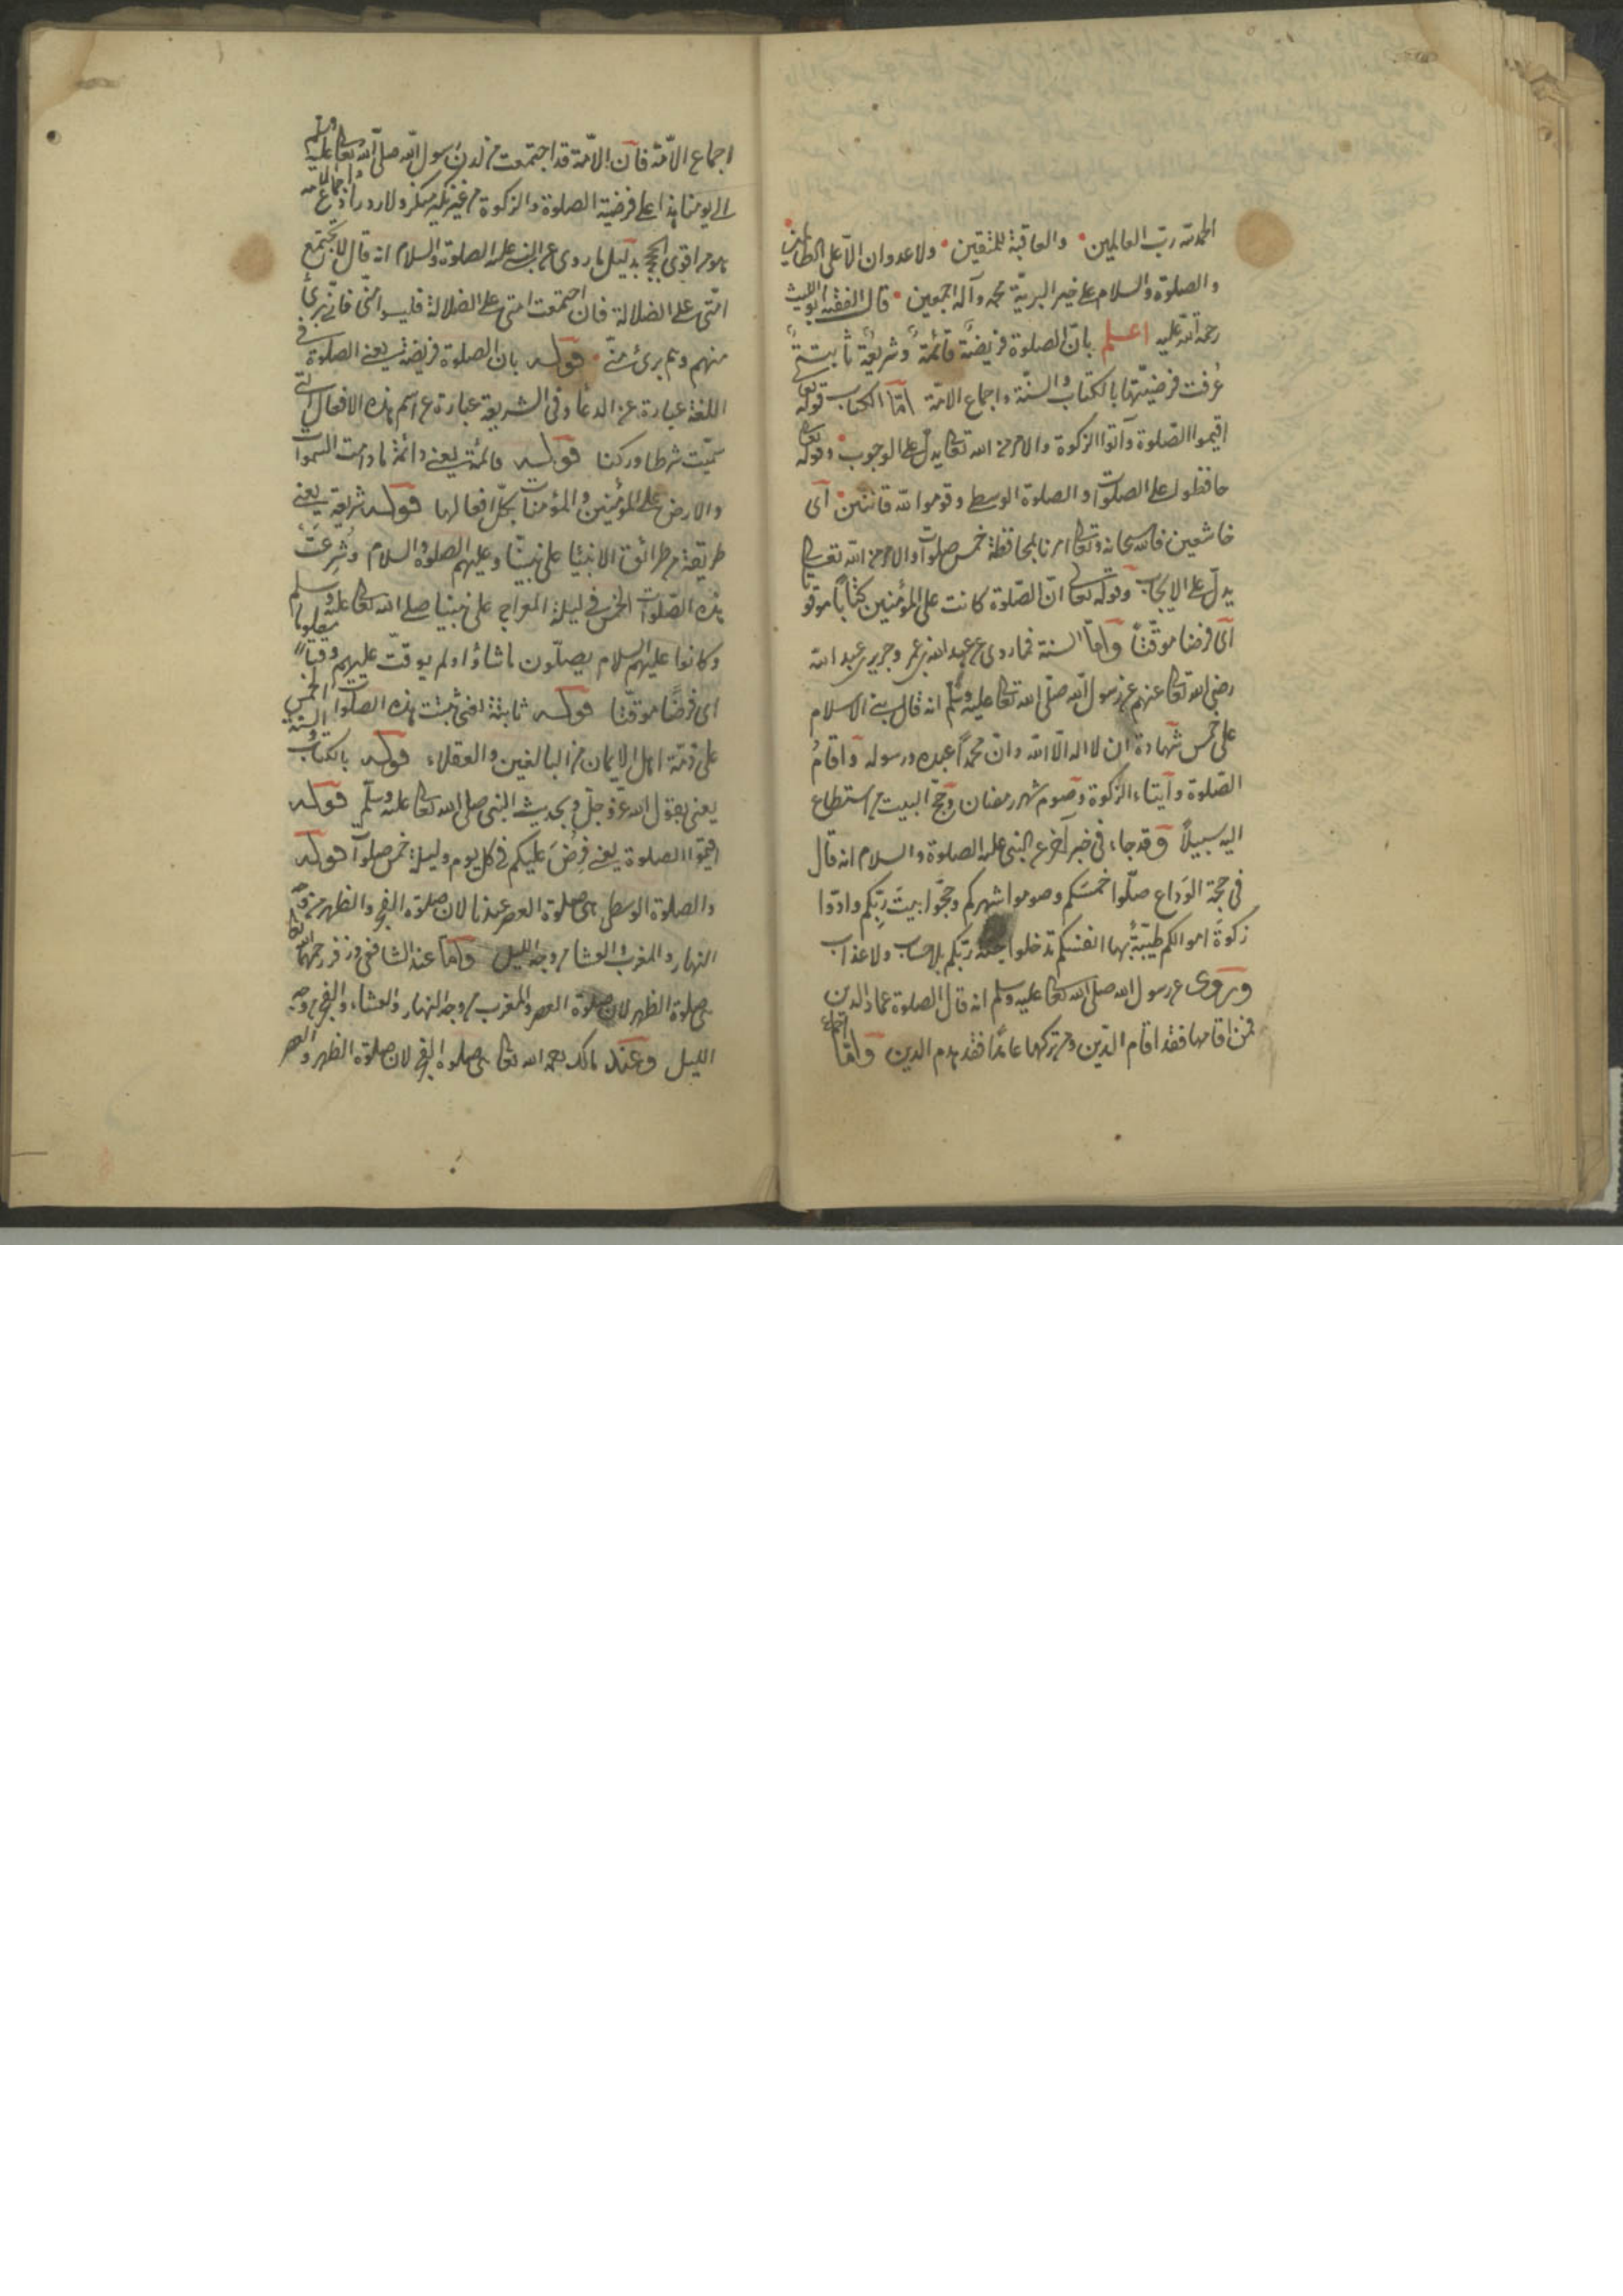 الحمد لله ربّ العالمين والعاقبة للمتقين ولا عدوان الّا على الظالمين
والصلوة والسلام على خير البريّة محمد وآله اجمعين قال الفقيه ابو الليث
رحمة الله عليه اعلم بانّ الصلوة فريضةً قائمةً وشريعةً ثابتةً
عُرفت فرضيّتها بالكتاب والسنّة واجماع الامّة امّا الكتاب قوله تعالى
اقيموا الصّلوة وآتوا الزكوة والامر من الله تعالى يدلّ على الوجوب وقوله تعالى
حافظوا على الصلوات والصلوة الوسطى وقوموا لله قانتين اى
خاشعين فالله سبحانه وتعالى امرنا بمحافظة خمس صلوات والامر من الله تعالى
يدلّ على الايجاب وقوله تعالى انّ الصّلوة كانت على المؤمنين كتاباً موقوتا
اى فرضا موقّتاً وامّا السنة فما روى عن عبد الله بن عمر وجرير بن عبد الله
رضى الله تعالى عنهم عن رسول الله صلّى الله تعالى عليه وسلّم انه قال بنى الاسلام
على خمس شهادة ان لا اله الّا الله وانّ محمّداً عبده ورسوله واقامُ
الصّلوة وايتاء الزّكوة وصوم شهر رمضان وحجّ البيت من استطاع
اليه سبيلاً وقد جاء فى خبر آخر عن النبى عليه الصلوة والسلام انه قال
فى حجة الوَداع صلّوا خمسَكم وصوموا شهركم وحجّوا بيتَ ربّكم وادّوا
زكوة اموالكم طيّبةً بها انفسكم تدخلوا جنة ربّكم بلا حساب ولا عذاب
وروى عن رسول الله صلى الله تعالى عليه وسلم انه قال الصلوة عماد الدين
فمن اقامها فقد اقام الدّين ومن تركها عامدًا فقد هدم الدين وامّا اجماع
اجماع الامّة فانّ الامّة قد اجتمعت من لدن رسول الله صلّى الله تعالى عليه وسلم
الى يومنا هذا على فرضية الصلوة والزكوة من غير نكير منكر ولا ردّ رادّ واجماع الامة
هو من اقوى الحجج بدليل ما روى عن النبى عليه الصلوة والسلام انه قال لا يجتمع
امّتى على الضلالة فان اجتمعت امتى على الضلالة فليسوا منّى فانّى برئ
منهم وهم برئ منّى قوله بان الصلوة فريضة يعنى الصلوة فى
اللغة عبارة عن الدعاء وفى الشريعة عبارة عن اسم هذه الافعال التى
سمّيت شرطا وركنا قوله قائمة يعنى دائمة ما دامت السموات
والارض على المؤمنين والمؤمنات بكلّ افعالها قوله شريعة يعنى
طريقة من طرائق الانبيا على نبيّنا وعليهم الصلوة والسلام وشرعت
هذه الصّلوات الخمس فى ليلة المعراج على نبينا صلى الله تعالى عليه وسلم
وكانوا عليهم السلام يصلّون ما شاؤا ولم يوقّت عليهم وقتاً معلوما
اى فرضًا موقّتا قوله ثابتة اعنى ثبتت هذه الصلوات الخمس
على ذمّة اهل الايمان من البالغين والعقلاء قوله بالكتاب والسنة
يعنى بقول الله عزّ وجلّ وبحديث النبى صلى الله تعالى عليه وسلّم قوله
اقيموا الصلوة يعنى فرض عليكم فى كل يوم وليلة خمس صلوات قوله
والصلوة الوسطى هى صلوة العصر عندنا لان صلوة الفجر والظهر من وجه
النهار والمغرب والعشا من وجه الليل وامّا عند الشافعى وزفر رحمهما الله تعالى
هى صلوة الظهر لان صلوة العصر والمغرب من وجه النهار والعشاء والفجر من وجه
الليل وعند مالك رحمه الله تعالى هى صلوة الفجر لان صلوة الظهر والعصر